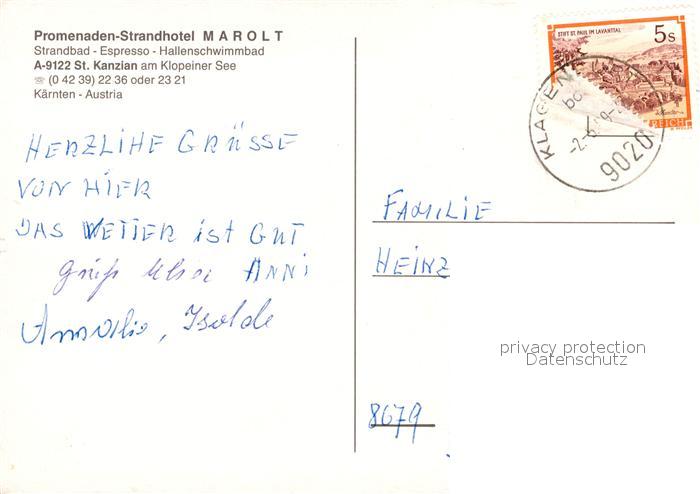 Promenaden-Strandhotel MAROLT
Strandbad - Espresso - Hallenschwimmbad
A-9122 St. Kanzian am Klopeiner See
☏ (0 42 39) 22 36 oder 23 21
Kärnten - Austria
STIFT ST. PAUL IM LAVANTTAL
5s
REICH
KLAGEN
9020
HERZLIHE GRÜSSE
VON HIER
DAS WETTER ist GUT
Gruß ANNI
Amalia, Isolde
FAMILIE
HEINZ
privacy protection
Datenschutz
8679